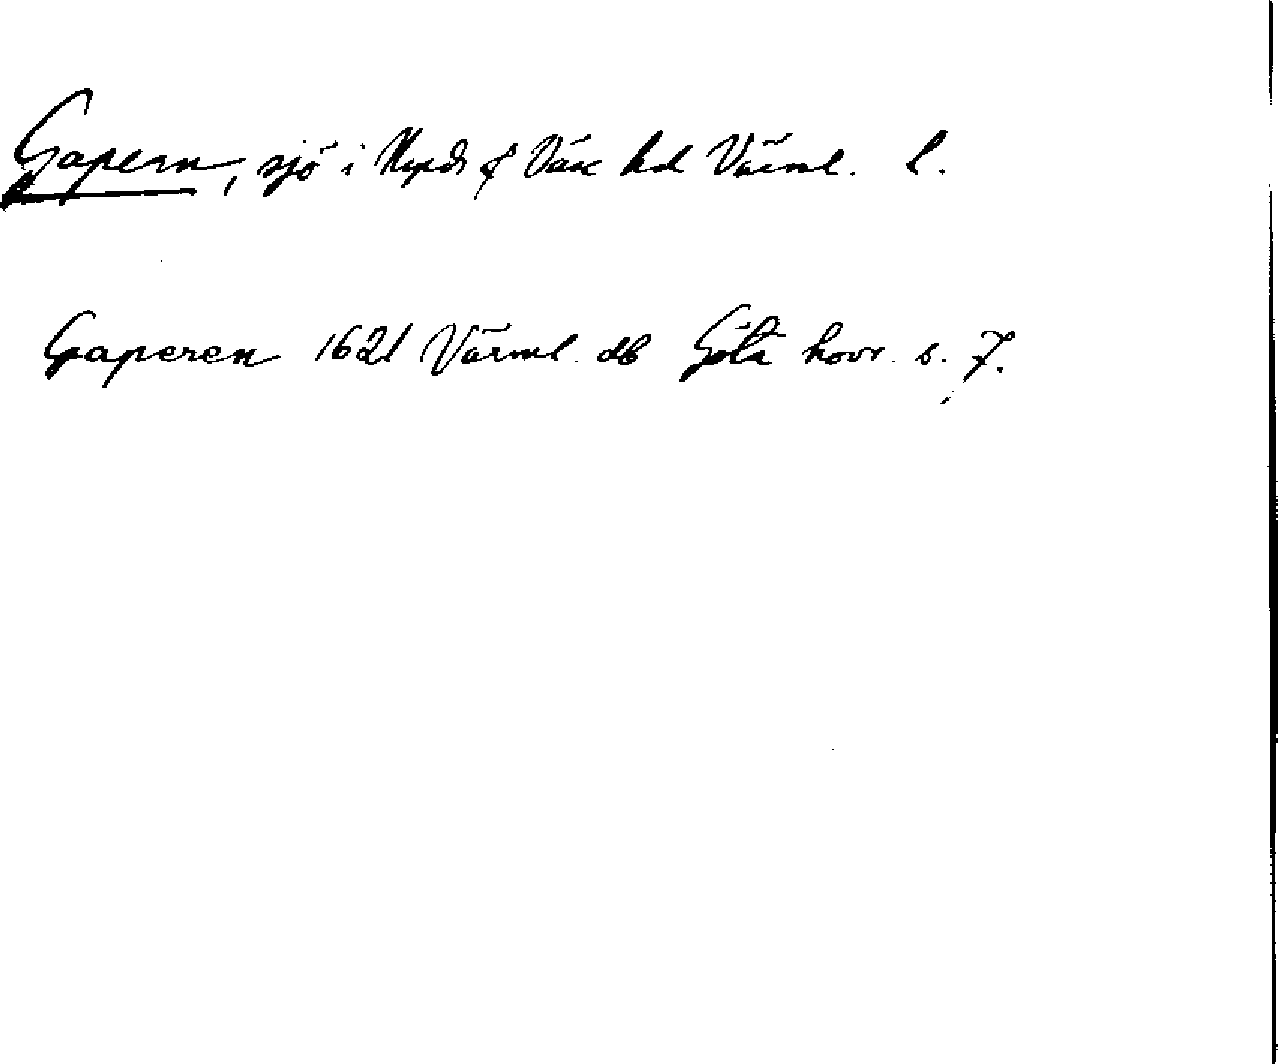 Gapern, sjö i Nyeds & Väse hd Värml. l.
Gaperen 1621 Värml. db Göta hovr. s. 7.